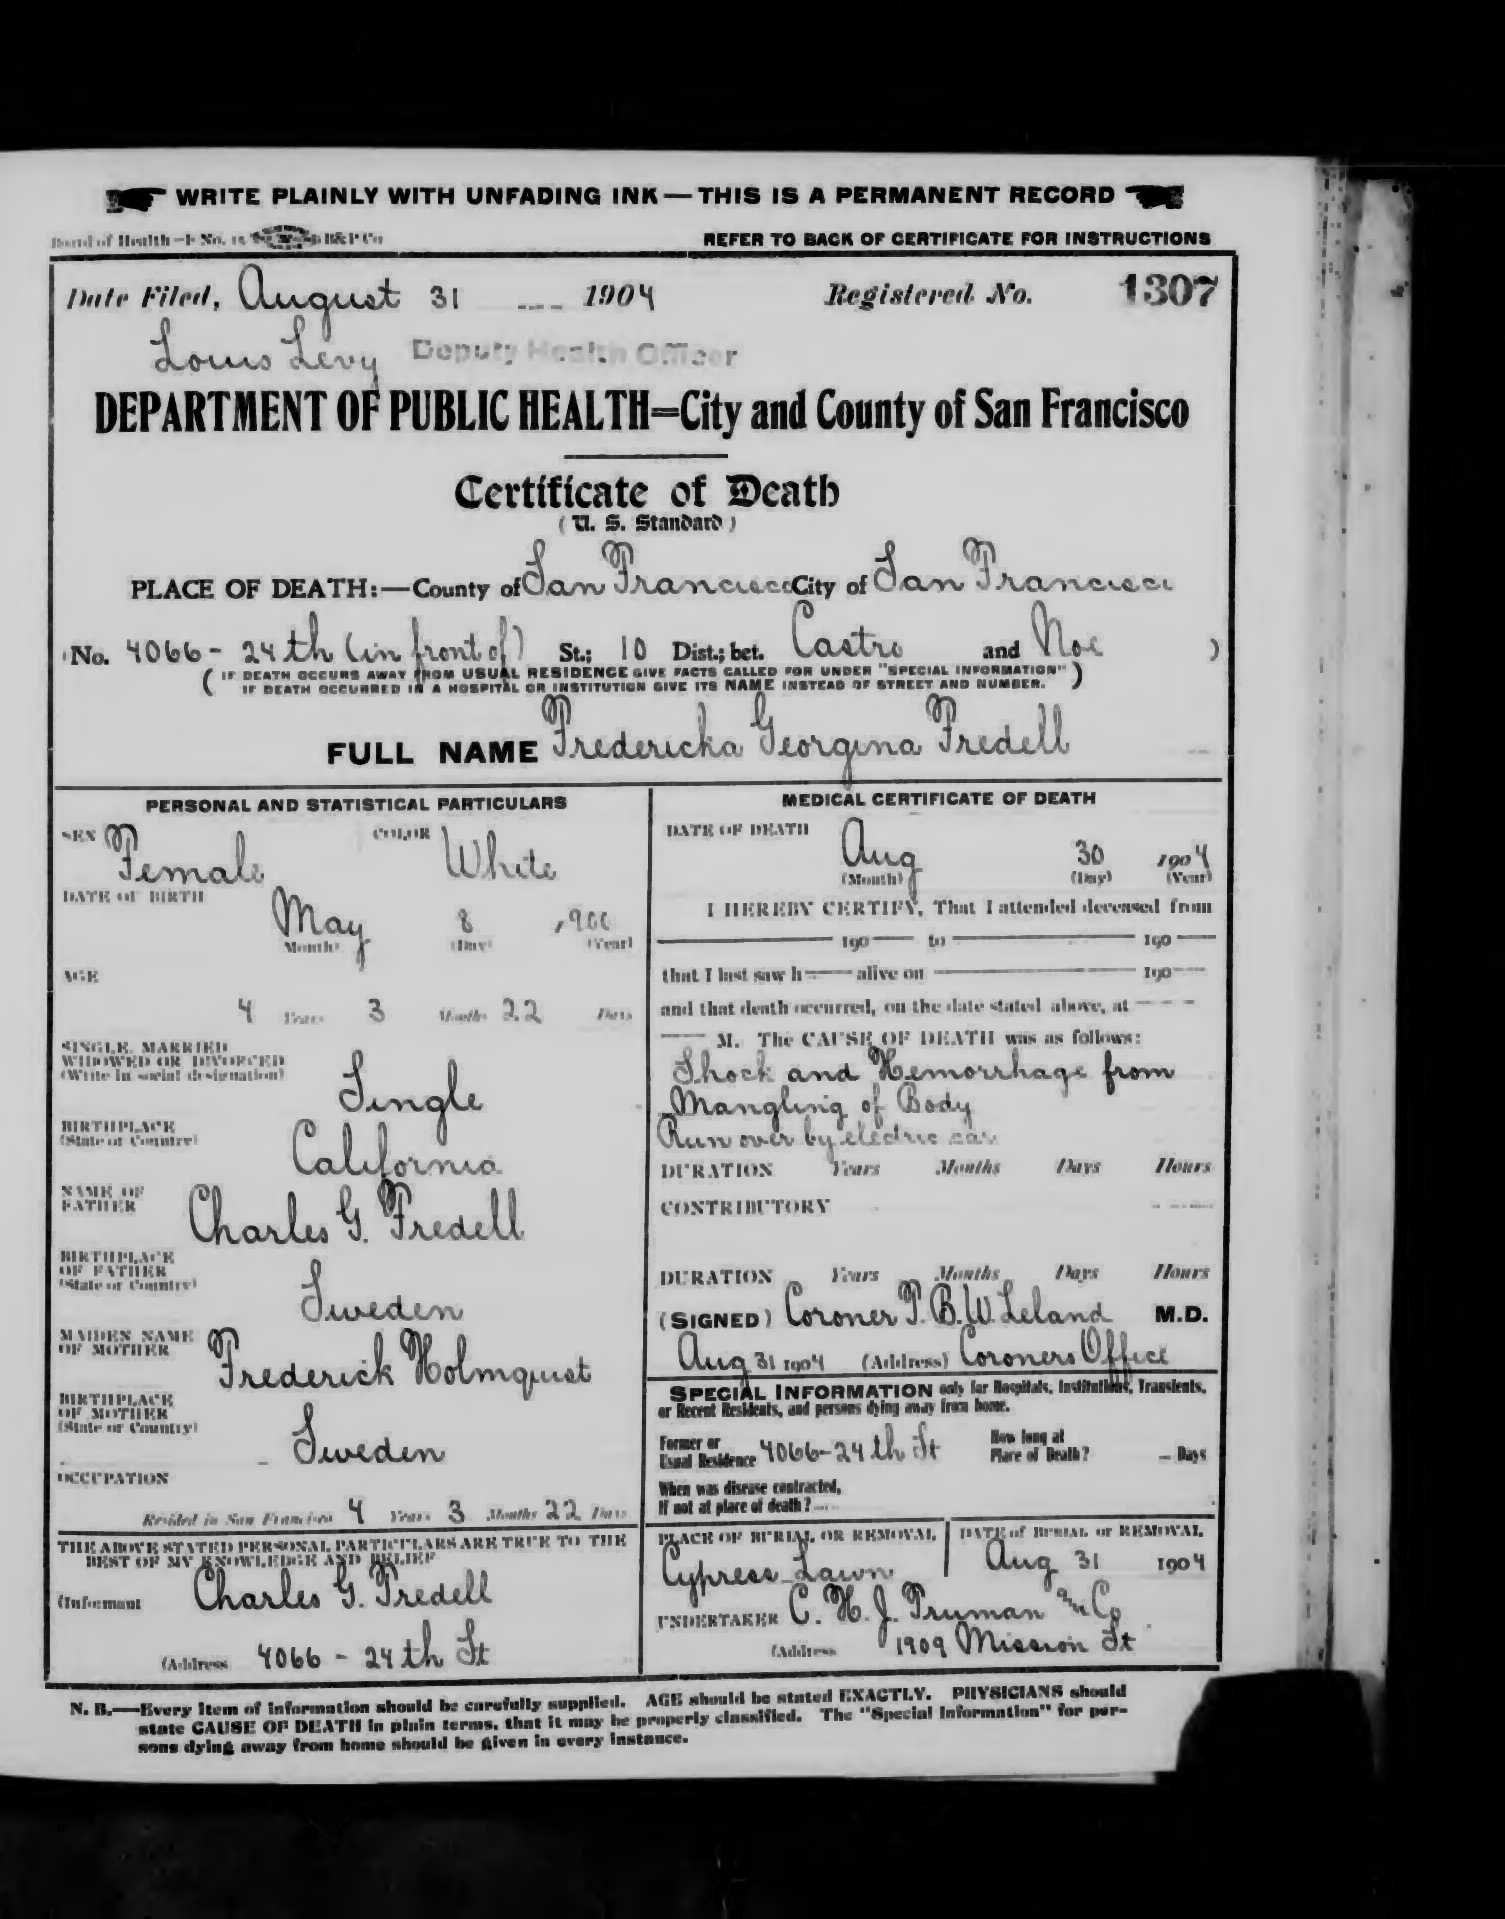 WRITE PLAINLY WITH UNFADING INK — THIS IS A PERMANENT RECORD
Board of Health—F No. B&P Co
REFER TO BACK OF CERTIFICATE FOR INSTRUCTIONS
Date Filed, August 31 1904 Registered No. 1307
Louis Levy Deputy Health Officer
DEPARTMENT OF PUBLIC HEALTH=City and County of San Francisco
Certificate of Death
(U. S. Standard)
PLACE OF DEATH:—County of San Francisco City of San Francisco
(No. 4066 - 24th (in front of) St.; 10 Dist.; bet. Castro and Noe )
( IF DEATH OCCURS AWAY FROM USUAL RESIDENCE GIVE FACTS CALLED FOR UNDER "SPECIAL INFORMATION" )
( IF DEATH OCCURRED IN A HOSPITAL OR INSTITUTION GIVE ITS NAME INSTEAD OF STREET AND NUMBER. )
FULL NAME Fredericka Georgina Fredell
PERSONAL AND STATISTICAL PARTICULARS
SEX Female COLOR White
DATE OF BIRTH
May 8 1900
(Month) (Day) (Year)
AGE
4 Years 3 Months 22 Days
SINGLE, MARRIED
WIDOWED OR DIVORCED
(Write in social designation)
Single
BIRTHPLACE
(State or Country)
California
NAME OF
FATHER
Charles G. Fredell
BIRTHPLACE
OF FATHER
(State or Country)
Sweden
MAIDEN NAME
OF MOTHER
Frederick Holmquist
BIRTHPLACE
OF MOTHER
(State or Country)
Sweden
OCCUPATION
Resided in San Francisco 4 Years 3 Months 22 Days
THE ABOVE STATED PERSONAL PARTICULARS ARE TRUE TO THE
BEST OF MY KNOWLEDGE AND BELIEF
(Informant Charles G. Fredell
(Address 4066 - 24th St
MEDICAL CERTIFICATE OF DEATH
DATE OF DEATH
Aug 30 1904
(Month) (Day) (Year)
I HEREBY CERTIFY, That I attended deceased from
190 to 190
that I last saw h alive on 190
and that death occurred, on the date stated above, at
M. The CAUSE OF DEATH was as follows:
Shock and Hemorrhage from
Mangling of Body
Run over by electric car
DURATION Years Months Days Hours
CONTRIBUTORY
DURATION Years Months Days Hours
(SIGNED) Coroner T. B. W. Leland M.D.
Aug 31 1904 (Address) Coroners Office
SPECIAL INFORMATION only for Hospitals, Institutions, Transients,
or Recent Residents, and persons dying away from home.
Former or
Usual Residence 4066-24th St
How long at
Place of Death? — Days
When was disease contracted,
If not at place of death?
PLACE OF BURIAL OR REMOVAL
Cypress Lawn
DATE of BURIAL or REMOVAL
Aug 31 1904
UNDERTAKER C. H. J. Truman and Co
(Address 1909 Mission St
N. B.—Every item of information should be carefully supplied. AGE should be stated EXACTLY. PHYSICIANS should
state CAUSE OF DEATH in plain terms, that it may be properly classified. The "Special Information" for per-
sons dying away from home should be given in every instance.